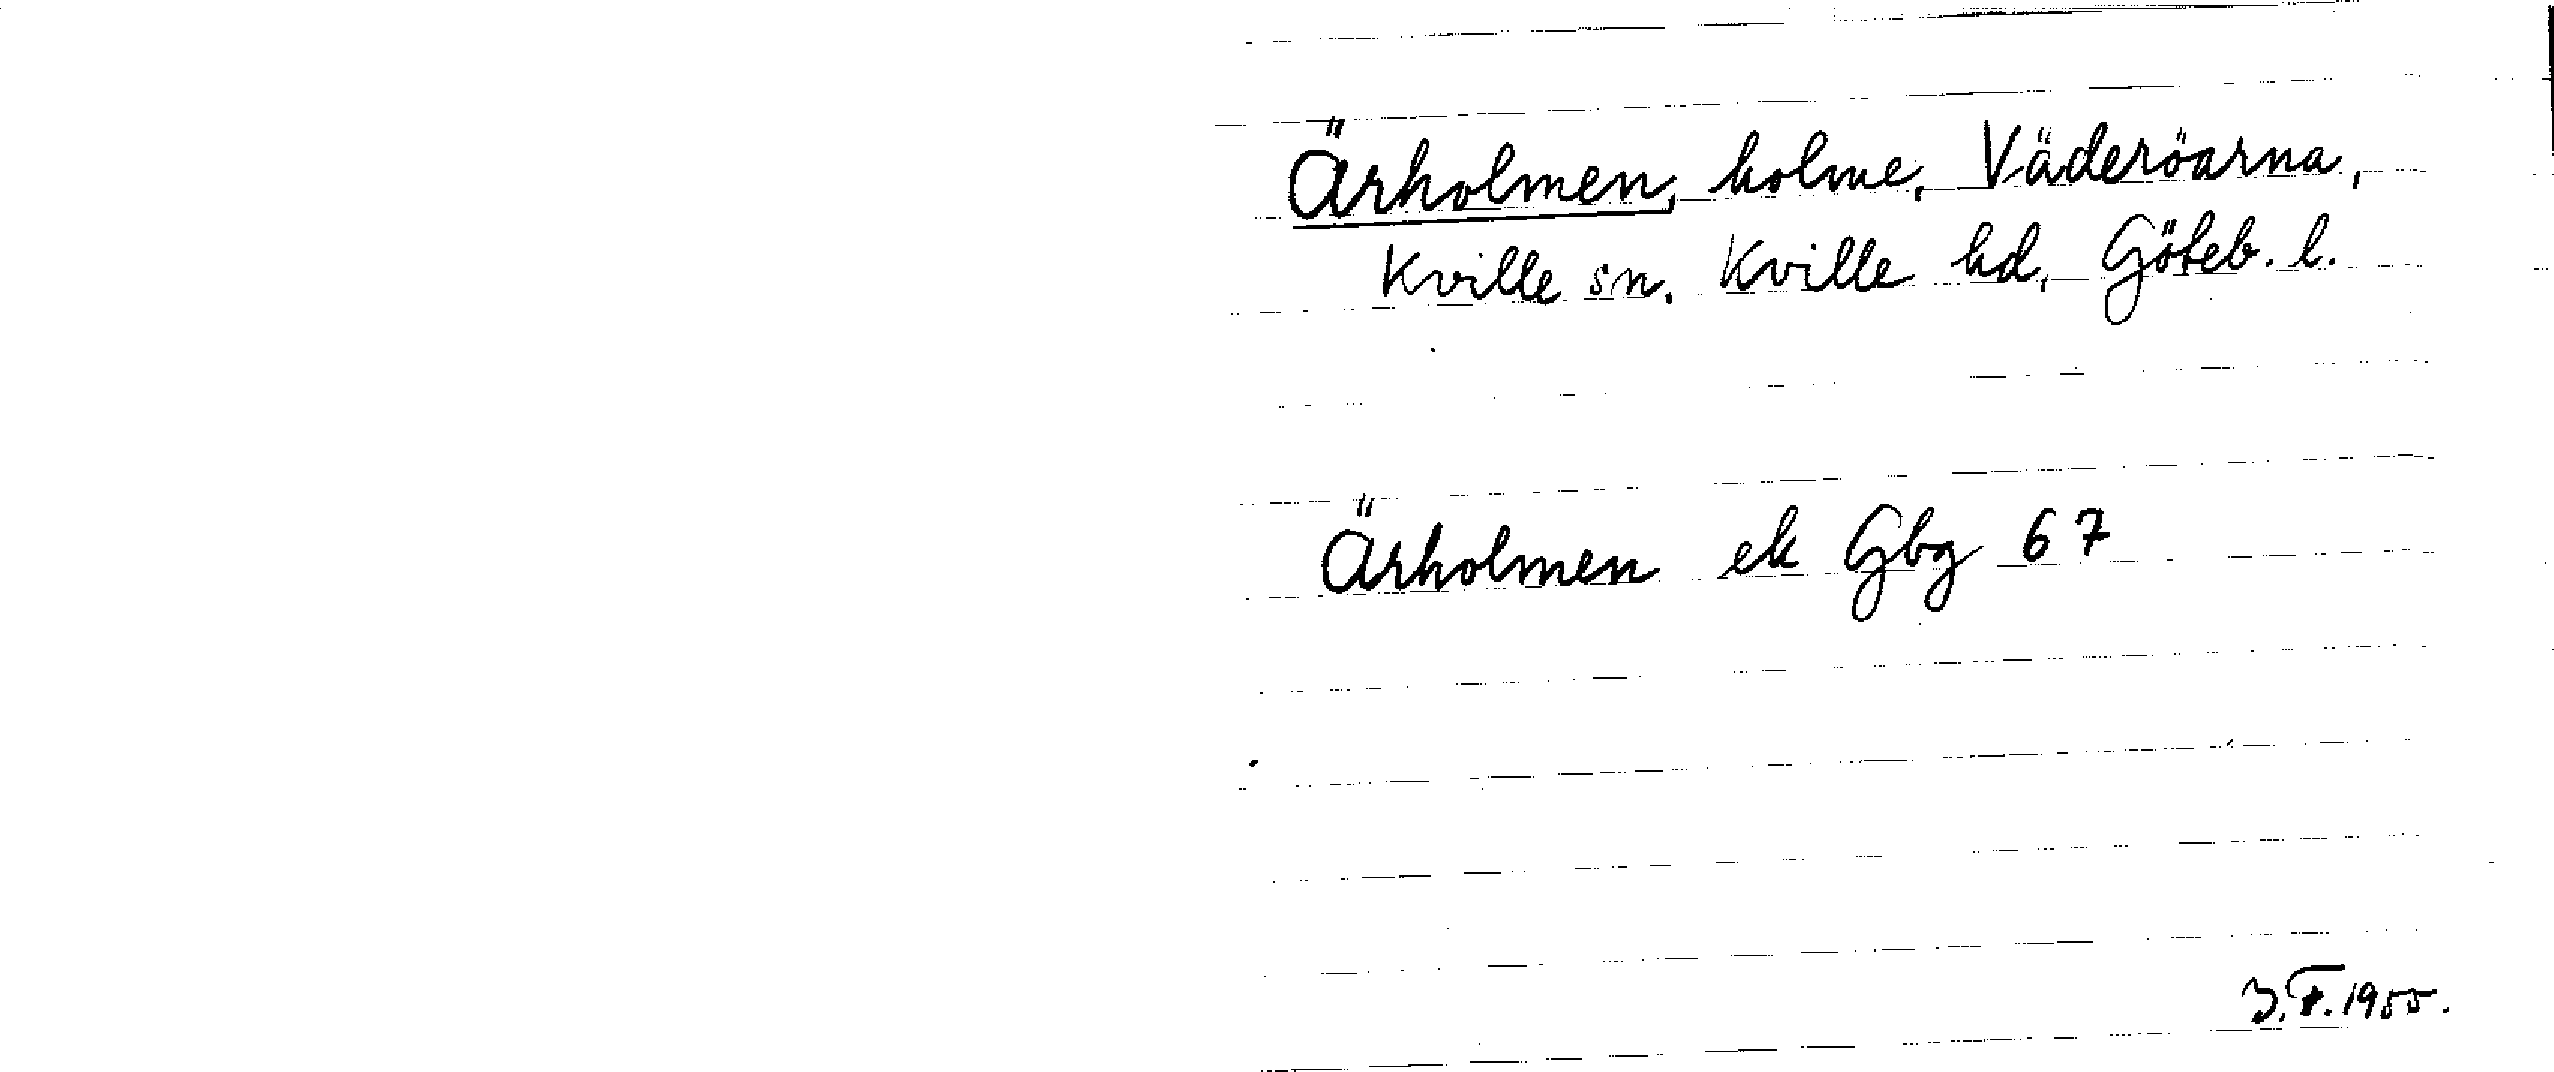 Ärholmen, holme, Väderöarna,
Kville sn. Kville hd, Göteb. l.
Ärholmen ek Gbg 67
1955.